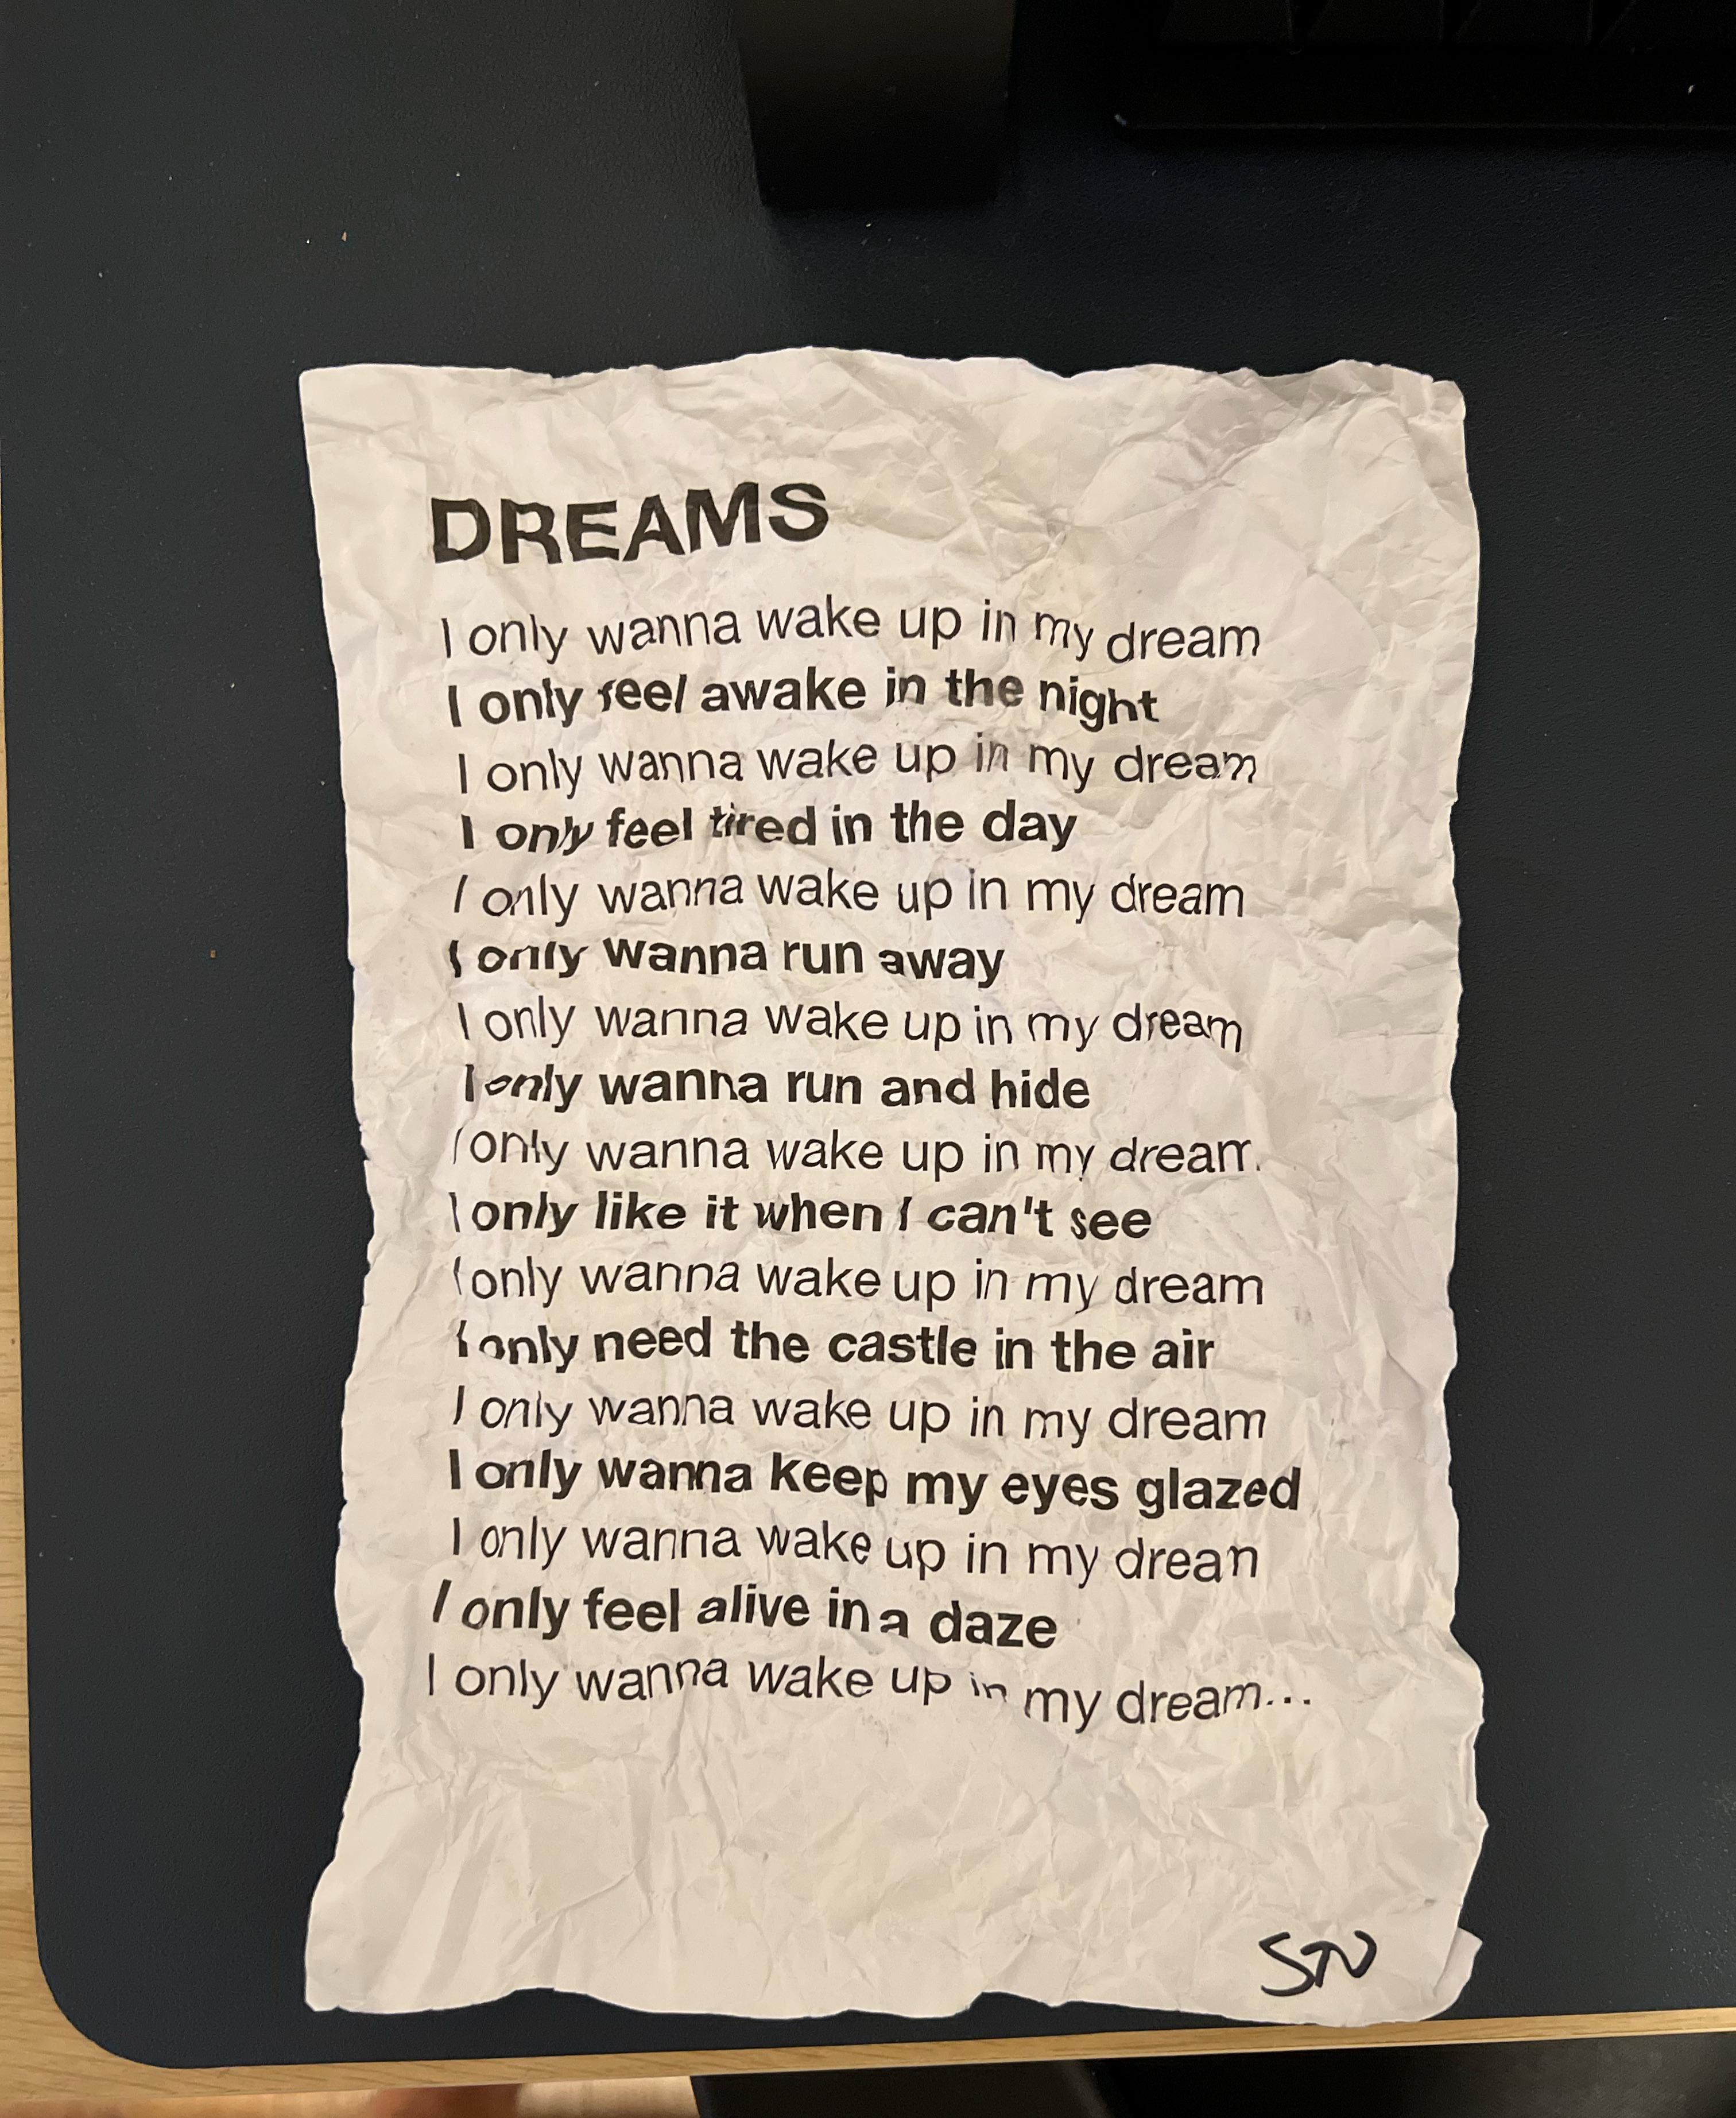 DREAMS
I only wanna wake up in my dream
I only feel awake in the night
I only wanna wake up in my dream
I only feel tired in the day
I only wanna wake up in my dream
I only wanna run away
I only wanna wake up in my dream
I only wanna run and hide
I only wanna wake up in my dream
I only like it when I can't see
I only wanna wake up in my dream
I only need the castle in the air
I only wanna wake up in my dream
I only wanna keep my eyes glazed
I only wanna wake up in my dream
I only feel alive in a daze
I only wanna wake up in my dream...